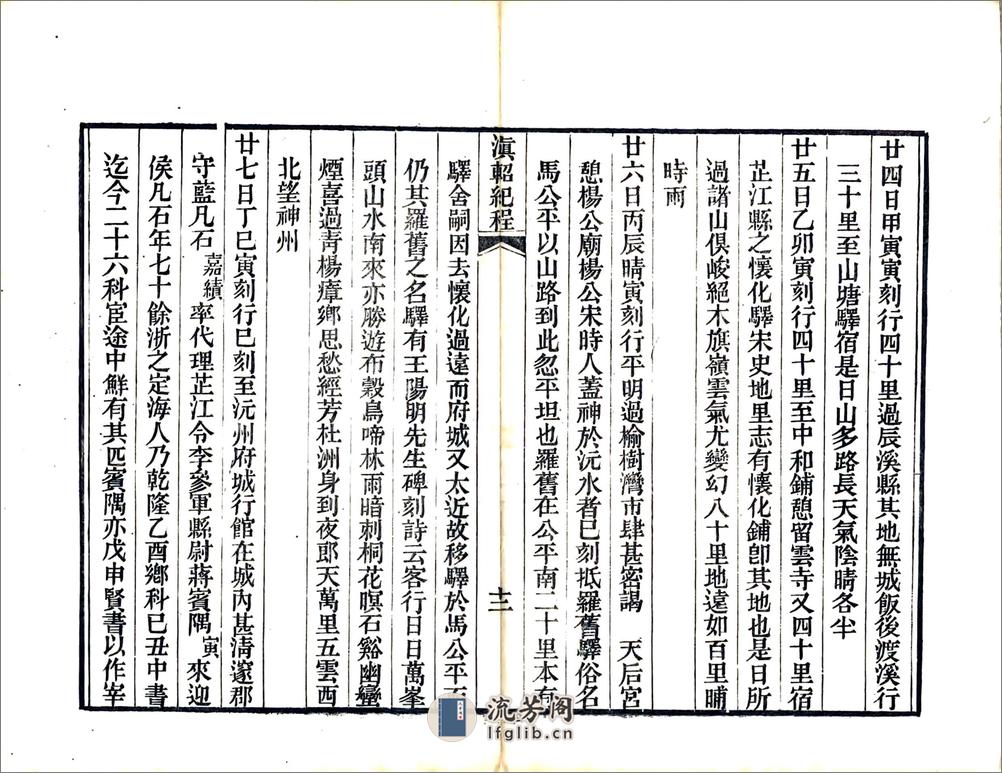 廿四日甲寅寅刻行四十里過辰溪縣其地無城飯後渡溪行
三十里至山塘驛宿是日山多路長天氣陰晴各半
廿五日乙卯寅刻行四十里至中和鋪憩留雲寺又四十里宿
芷江縣之懷化驛宋史地里志有懷化鋪卽其地也是日所
過諸山俱峻絕木旗嶺雲氣尤變幻八十里地遠如百里晡
時雨
廿六日丙辰晴寅刻行平明過榆樹灣市肆甚密謁　天后宮
憩楊公廟楊公宋時人蓋神於沅水者巳刻抵羅舊驛俗名
馬公平以山路到此忽平坦也羅舊在公平南二十里本有
滇軺紀程
十二
驛舍嗣因去懷化過遠而府城又太近故移驛於馬公平而
仍其羅舊之名驛有王陽明先生碑刻詩云客行日日萬峯
頭山水南來亦勝遊布穀鳥啼林雨暗刺桐花暝石谿幽蠻
煙喜過青楊瘴鄉思愁經芳杜洲身到夜郎天萬里五雲西
北望神州
廿七日丁巳寅刻行巳刻至沅州府城行館在城內甚清邃郡
守藍凡石嘉績率代理芷江令李參軍縣尉蔣賓隅寅來迎
侯凡石年七十餘浙之定海人乃乾隆乙酉鄉科己丑中書
迄今二十六科宦途中鮮有其匹賓隅亦戊申賢書以作宰
流芳阁
lfglib.cn